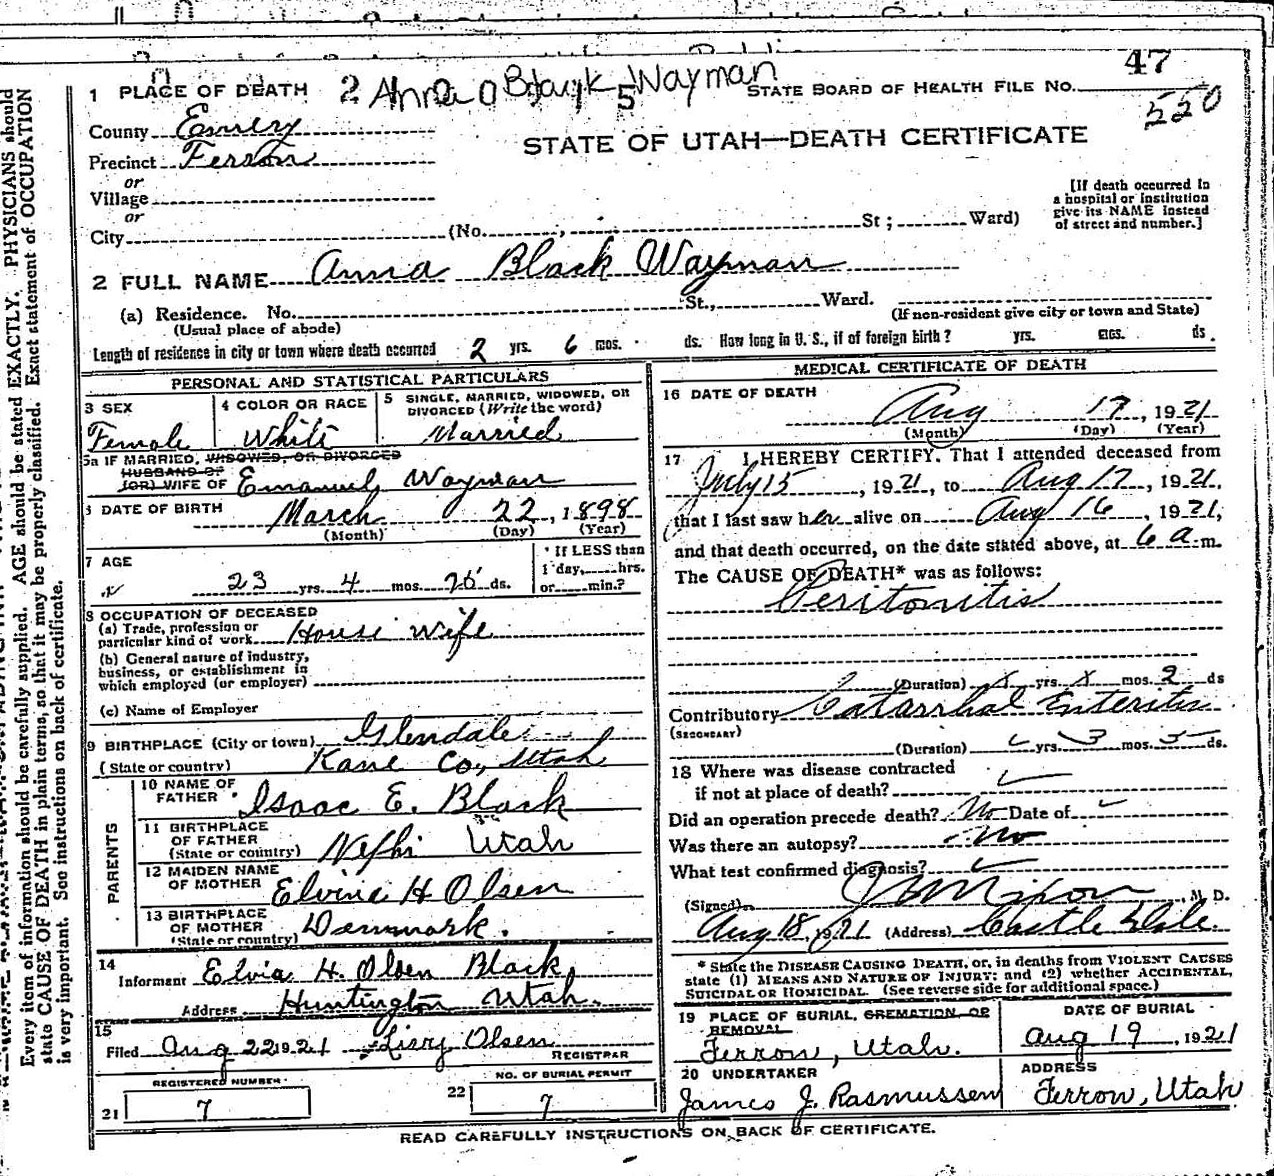 47
1 PLACE OF DEATH 2 Anna Black 5 Wayman STATE BOARD OF HEALTH FILE NO.
550
County Emery
STATE OF UTAH—DEATH CERTIFICATE
Precinct Ferron
or
Village
or
City (No. , St ; Ward)
[If death occurred in
a hospital or institution
give its NAME instead
of street and number.]
2 FULL NAME Anna Black Wayman
(a) Residence. No. St., Ward.
(Usual place of abode) (If non-resident give city or town and State)
Length of residence in city or town where death occurred 2 yrs. 6 mos. ds. How long in U. S., if of foreign birth? yrs. mos. ds.
PERSONAL AND STATISTICAL PARTICULARS
3 SEX 4 COLOR OR RACE 5 SINGLE, MARRIED, WIDOWED, OR
DIVORCED (Write the word)
Female White Married
5a IF MARRIED, WIDOWED, OR DIVORCED
HUSBAND OF
(OR) WIFE OF Emanuel Wayman
6 DATE OF BIRTH March 22, 1898
(Month) (Day) (Year)
7 AGE
23 yrs. 4 mos. 25 ds.
If LESS than
1 day, hrs.
or min.?
8 OCCUPATION OF DECEASED
(a) Trade, profession or
particular kind of work House wife
(b) General nature of industry,
business, or establishment in
which employed (or employer)
(c) Name of Employer
9 BIRTHPLACE (City or town) Glendale
(State or country) Kane Co, Utah
PARENTS
10 NAME OF
FATHER Isaac E. Black
11 BIRTHPLACE
OF FATHER
(State or country) Nephi Utah
12 MAIDEN NAME
OF MOTHER Elvina H Olsen
13 BIRTHPLACE
OF MOTHER
(State or country) Denmark.
14
Informant Elvia H. Olsen Black,
Address Huntington Utah.
15
Filed Aug 22 1921 Olsen
REGISTRAR
REGISTERED NUMBER
21 7
NO. OF BURIAL PERMIT
22 7
MEDICAL CERTIFICATE OF DEATH
16 DATE OF DEATH
Aug 17, 1921
(Month) (Day) (Year)
17 I HEREBY CERTIFY. That I attended deceased from
July 15, 1921, to Aug 17, 1921,
that I last saw her alive on Aug 16, 1921,
and that death occurred, on the date stated above, at 6 a.m.
The CAUSE OF DEATH* was as follows:
Peritonitis
(Duration) x yrs. x mos. 2 ds
Contributory Catarrhal Enteritis
(SECONDARY)
(Duration) yrs. 3 mos. 5 ds.
18 Where was disease contracted
if not at place of death?
Did an operation precede death? No Date of
Was there an autopsy? No
What test confirmed diagnosis?
(Signed) Nixon, M. D.
Aug 18, 1921 (Address) Castle Dale.
* State the DISEASE CAUSING DEATH, or, in deaths from VIOLENT CAUSES
state (1) MEANS AND NATURE OF INJURY; and (2) whether ACCIDENTAL,
SUICIDAL OR HOMICIDAL. (See reverse side for additional space.)
19 PLACE OF BURIAL, CREMATION, OR
REMOVAL
Ferron, Utah.
DATE OF BURIAL
Aug 19, 1921
20 UNDERTAKER
James J. Rasmussen
ADDRESS
Ferron, Utah
READ CAREFULLY INSTRUCTIONS ON BACK OF CERTIFICATE.
Every item of information should be carefully supplied. AGE should be stated EXACTLY. PHYSICIANS should
state CAUSE OF DEATH in plain terms, so that it may be properly classified. Exact statement of OCCUPATION
is very important. See instructions on back of certificate.